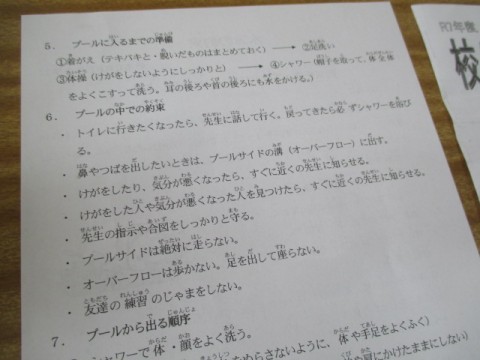 5. プールに入るまでの準備
①着がえ（テキパキと・脱いだものはまとめておく） → ②足洗い
③体操（けがをしないようにしっかりと） → ④シャワー（帽子を取って、体全体
をよくこすって洗う。耳の後ろや首の後ろにも水をかける。）
6. プールの中での約束
・トイレに行きたくなったら、先生に話して行く。戻ってきたら必ずシャワーを浴び
る。
・鼻やつばを出したいときは、プールサイドの溝（オーバーフロー）に出す。
・けがをしたり、気分が悪くなったら、すぐに近くの先生に知らせる。
・けがをした人や気分が悪くなった人を見つけたら、すぐに近くの先生に知らせる。
・先生の指示や合図をしっかりと守る。
・プールサイドは絶対に走らない。
・オーバーフローは歩かない。足を出して座らない。
・友達の練習のじゃまをしない。
7. プールから出る順序
シャワーで体・顔をよく洗う。
ぬらさないように、体や手足をよくふく）
R7年度
校